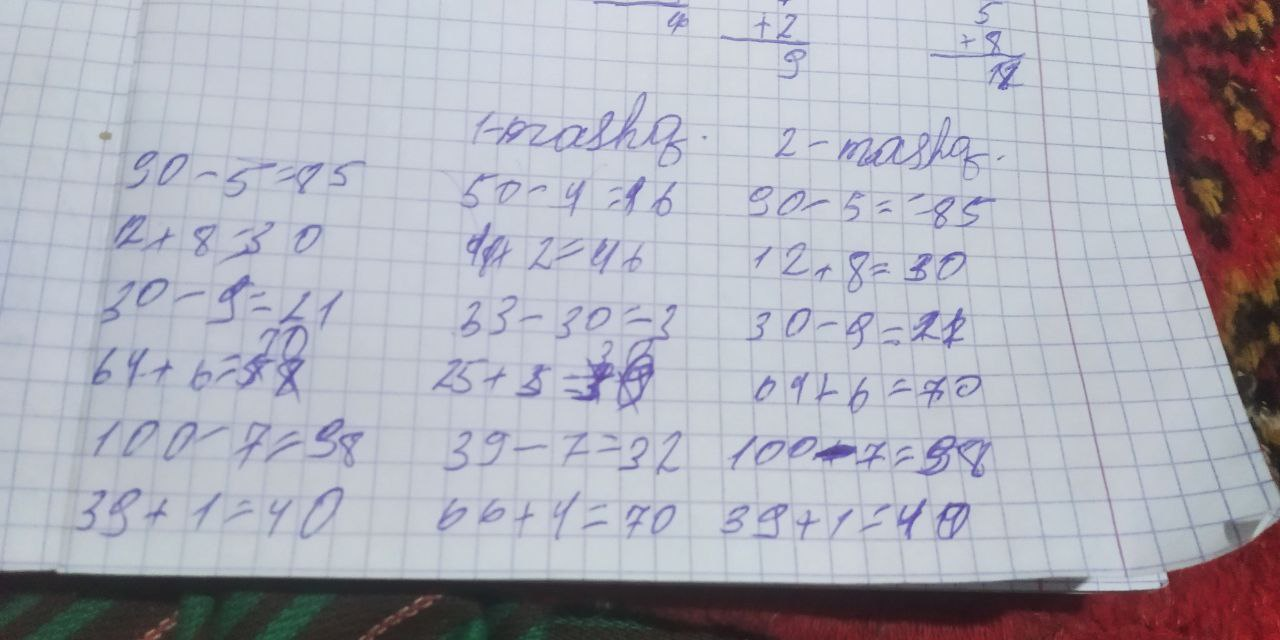 4 +2 5
9 +8
12
1-mashq. 2-mashq.
90-5=85 50-4=46 90-5=85
12+8=30 44+2=46 12+8=30
30-9=21 33-30=3 30-9=21
64+6=70 25+5=30 64+6=70
100-7=98 39-7=32 100-7=98
39+1=40 66+4=70 39+1=40